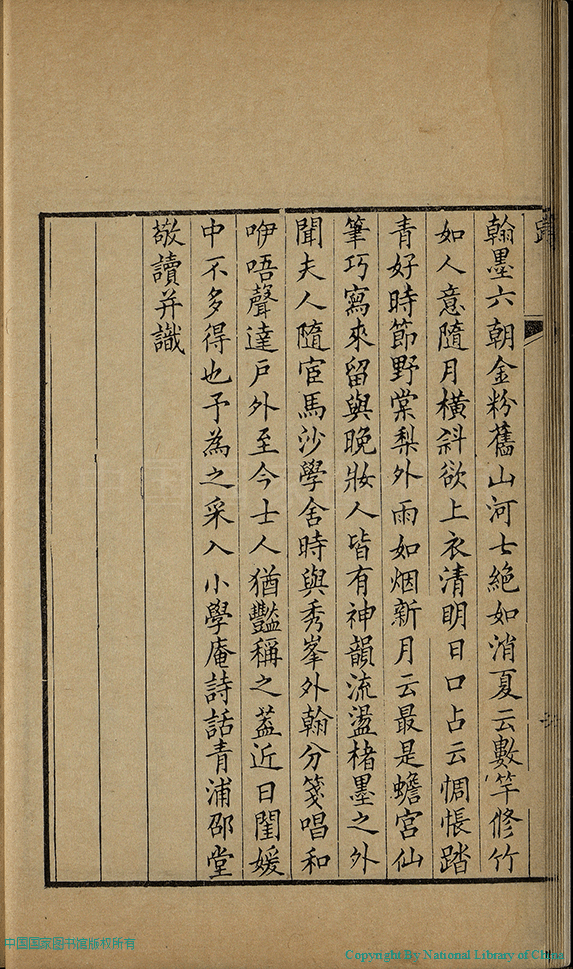 翰墨六朝金粉舊山河七絶如消夏云數竿修竹
如人意隨月橫斜欲上衣清明日口占云惆悵踏
青好時節野棠梨外雨如烟新月云最是蟾宮仙
筆巧寫來留與晚妝人皆有神韻流盪楮墨之外
聞夫人隨宦馬沙學舍時與秀峯外翰分箋唱和
咿唔聲達戶外至今士人猶豔稱之葢近日閨媛
中不多得也予為之采入小學庵詩話青浦邵堂
敬讀并識
中国国家图书馆版权所有
Copyright By National Library of China